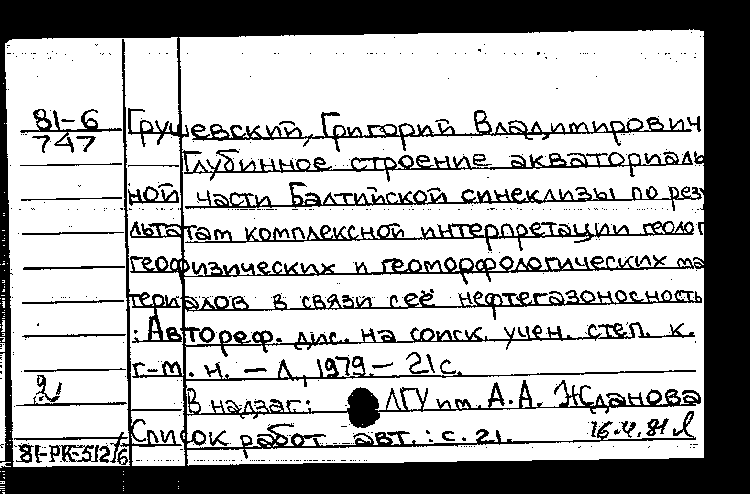 81-6
747
Грушевский, Григорий Владимирович
Глубинное строение акваториаль
ной части Балтийской синеклизы по резу
льтатам комплексной интерпретации геолог
геофизических и геоморфологических ма
териалов в связи с её нефтегазоносность
: Автореф. дис. на соиск. учен. степ. к.
г-м. н. — Л., 1979. — 21 с.
В надзаг: ЛГУ им. А.А. Жданова
Список работ авт. : с. 21.
16.4.81
81-РК-512/6